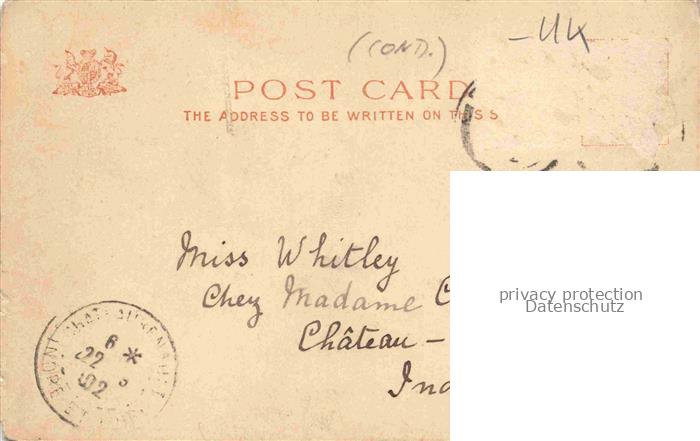 – UK
(COND.)
POST CARD
THE ADDRESS TO BE WRITTEN ON THIS S
Miss Whitley
Chez Madame C
Château –
Ind
privacy protection
Datenschutz
6
22
02